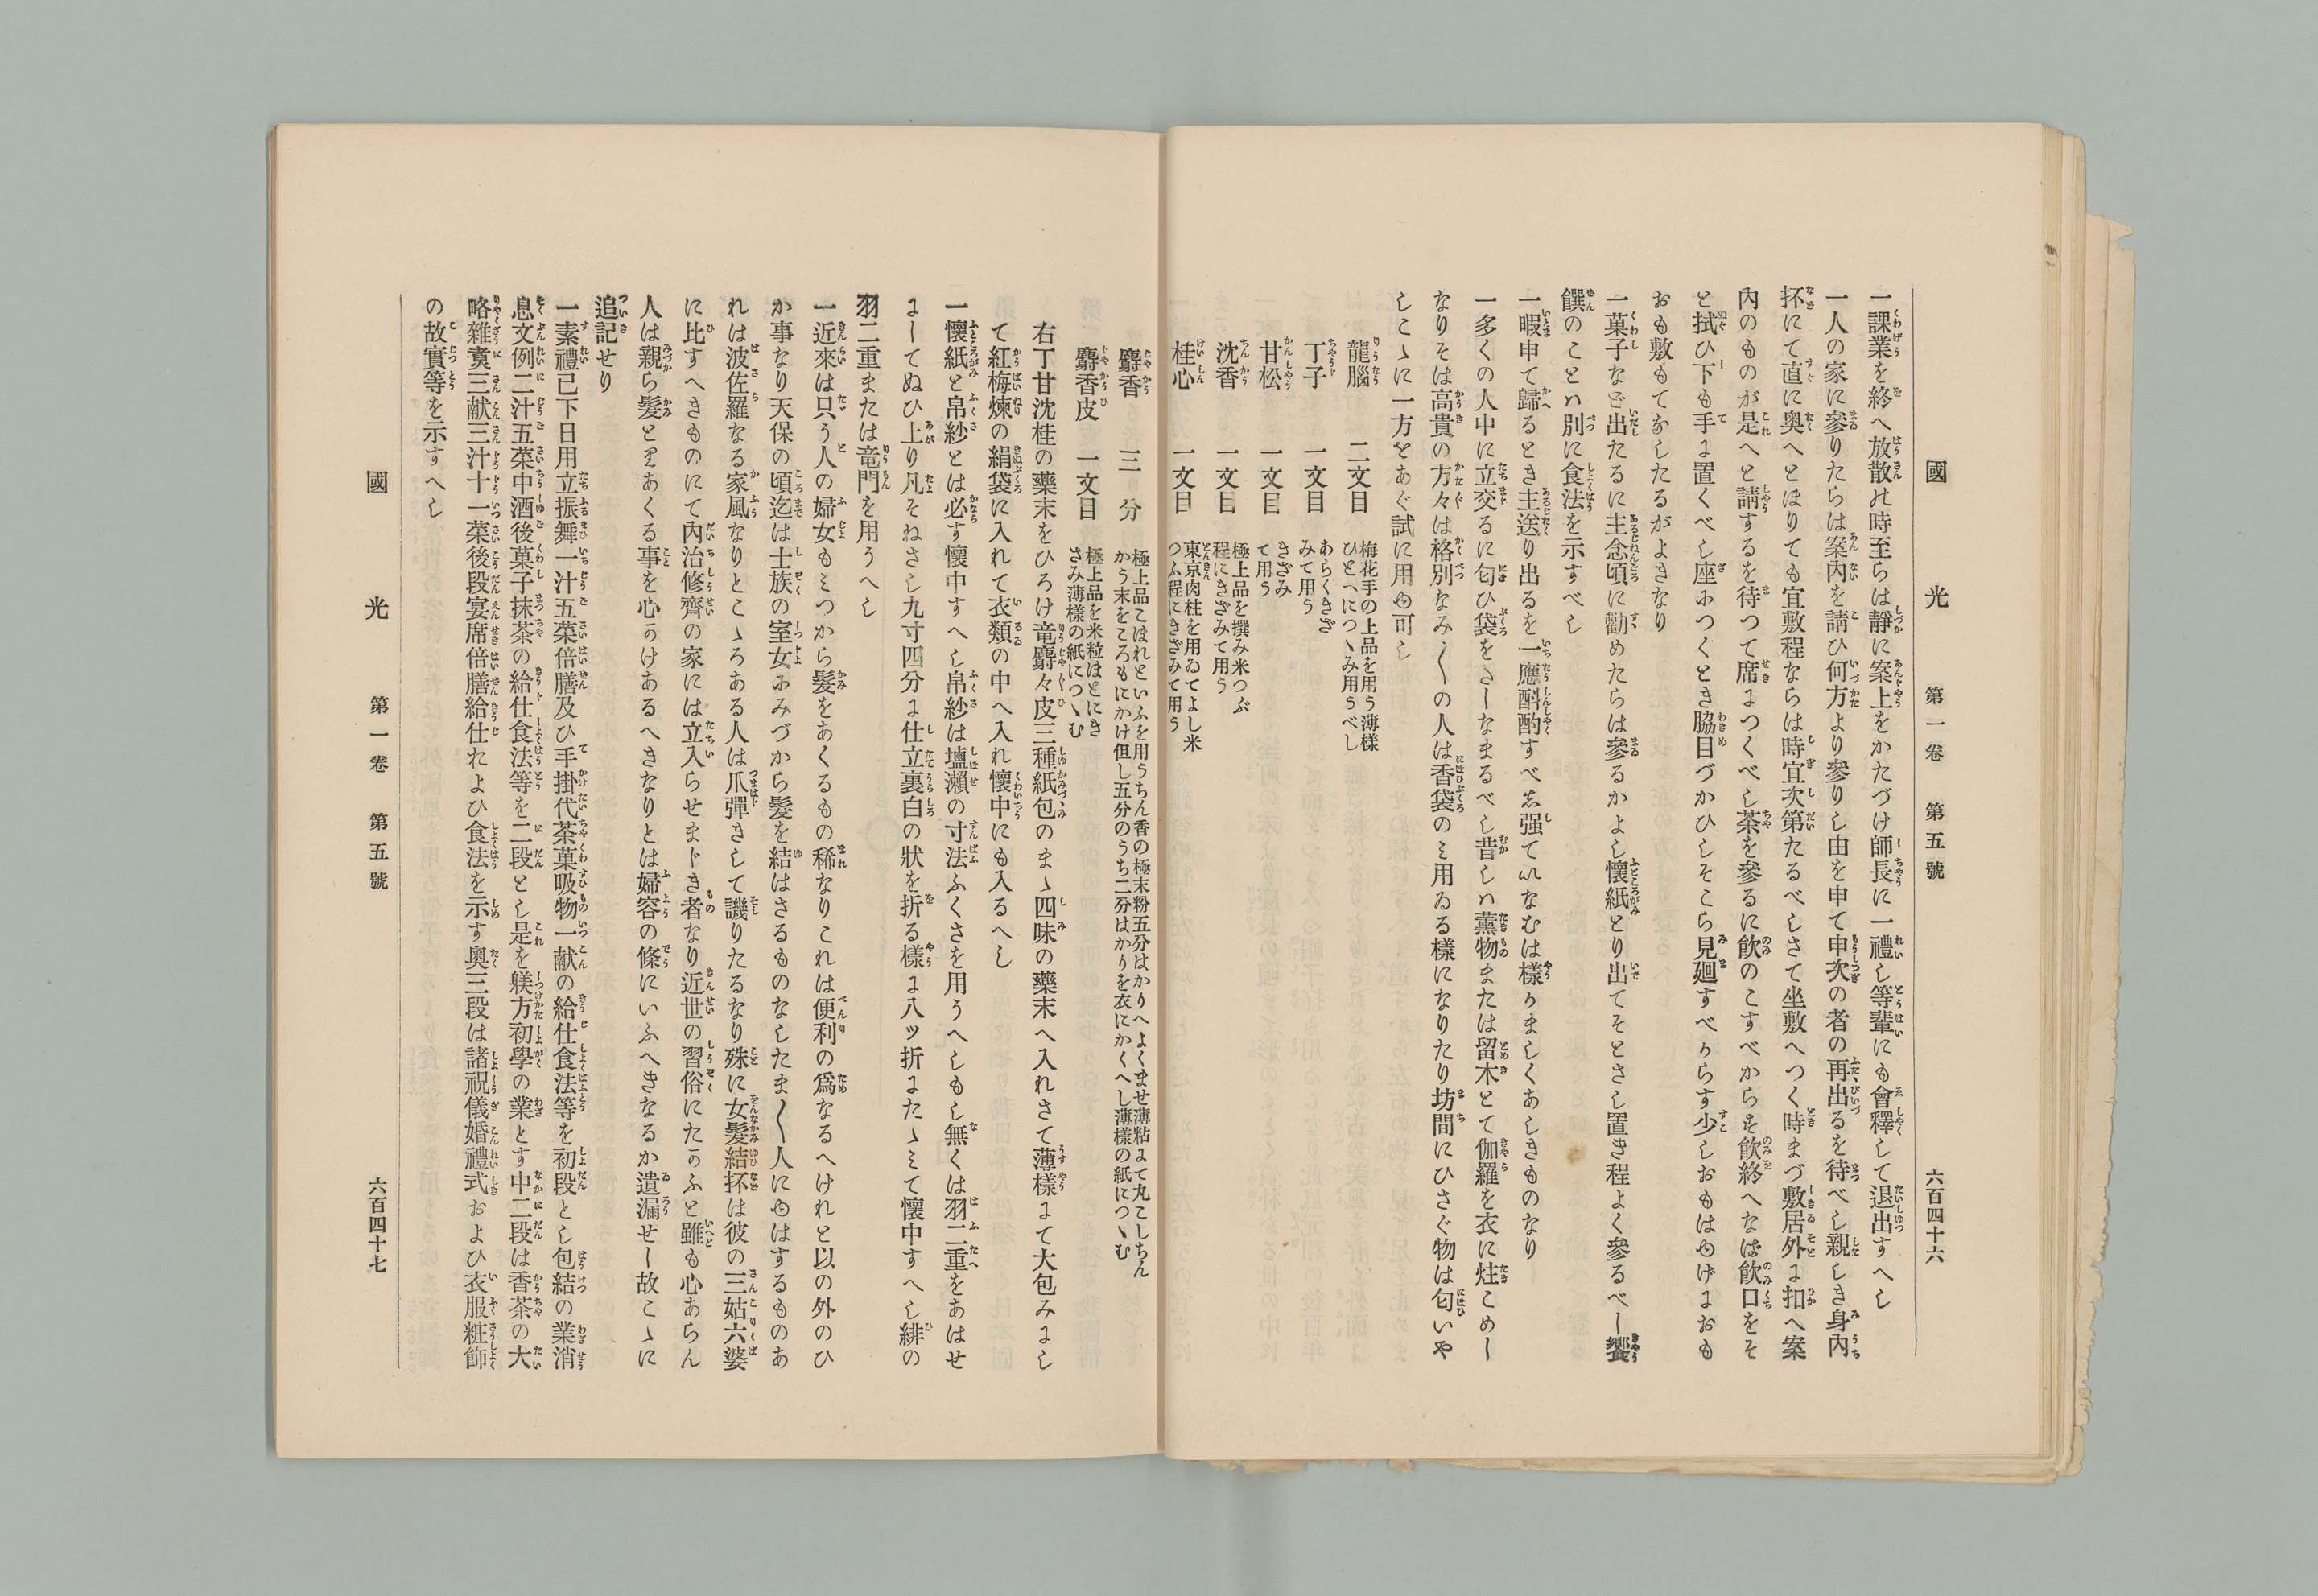 國光 第一卷 第五號 六百四十六
一課業を終へ放散の時至らは靜に案上をかたづけ師長に一禮し等輩にも會釋して退出すへし
一人の家に參りたらは案内を請ひ何方より參りし由を申て申次の者の再出るを待べし親しき身内
抔にて直に奧へとほりても宜敷程ならは時宜次第たるべしさて坐敷へつく時まづ敷居外に扣へ案
内のものが是へと請するを待つて席につくべし茶を參るに飲のこすべからず飲終へなば飲口をそ
と拭ひ下も手に置くべし座につくとき脇目づかひしそこら見廻すべからす少しおもはゆげにおも
おも敷もてなしたるがよきなり
一菓子など出たるに主念頃に勸めたらは參るかよし懷紙とり出てそとさし置き程よく參るべし饗
饌のことハ別に食法を示すべし
一暇申て歸るとき主送り出るを一應酙酌すべし强ていなむは樣かましくあしきものなり
一多くの人中に立交るに匂ひ袋をさしなまるべし昔しハ薰物または留木とて伽羅を衣に炷こめし
なりそは高貴の方々は格別なみ〳〵の人は香袋のミ用ゐる樣になりたり坊間にひさぐ物は匂いや
しこゝに一方をあぐ試に用ゆ可し
龍腦 二文目 梅花手の上品を用う薄樣ひとへにつゝみ用うべし
丁子 一文目 あらくきざみて用う
甘松 一文目 きざみて用う
沈香 一文目 極上品を撰み米つぶ程にきざみて用う
桂心 一文目 東京肉桂を用ゐてよし米つふ程にきざみて用う
麝香 三分 極上品こはれといふを用うちん香の極末粉五分はかりへよくませ薄粘にて丸こしちんかう末をころもにかけ但し五分のうち二分はかりを衣にかくへし薄樣の紙につゝむ
麝香皮 一文目 極上品を米粒ほとにきさみ薄樣の紙につゝむ
右丁甘沈桂の藥末をひろけ竜麝々皮三種紙包のまゝ四味の藥末へ入れさて薄樣にて大包みにし
て紅梅煉の絹袋に入れて衣類の中へ入れ懷中にも入るへし
一懷紙と帛紗とは必す懷中すへし帛紗は塩瀨の寸法ふくさを用うへしもし無くは羽二重をあはせ
にしてぬひ上り凡そねさし九寸四分に仕立裏白の狀を折る樣に八ッ折にたゝミて懷中すへし緋の
羽二重または竜門を用うへし
一近來は只う人の婦女もミつから髮をあくるもの稀なりこれは便利の爲なるへけれと以の外のひ
か事なり天保の頃迄は士族の室女みづから髮を結はさるものなしたま〳〵人にゆはするものあ
れは波佐羅なる家風なりとこゝろある人は爪彈きして譏りたるなり殊に女髮結抔は彼の三姑六婆
に比すへきものにて內治修齊の家には立入らせまじき者なり近世の習俗にたかふと雖も心あらん
人は親ら髮とりあくる事を心かけあるへきなりとは婦容の條にいふへきなるか遺漏せし故こゝに
追記せり
一素禮已下日用立振舞一汁五菜倍膳及ひ手掛代茶菓吸物一献の給仕食法等を初段とし包結の業消
息文例二汁五菜中酒後菓子抹茶の給仕食法等を二段とし是を躾方初學の業とす中二段は香茶の大
略雜𤎼三献三汁十一菜後段宴席倍膳給仕およひ食法を示す奧三段は諸祝儀婚禮式およひ衣服粧飾
の故實等を示すへし
國光 第一卷 第五號 六百四十七